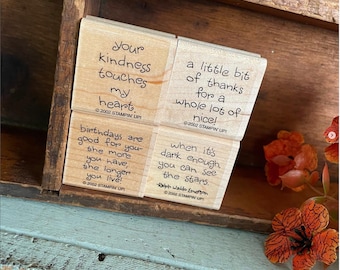 your
kindness
touches
my
heart
© 2002 STAMPIN' UP!
a little bit
of thanks
for a
whole lot of
nice!
© 2002 STAMPIN' UP!
birthdays are
good for you
the more
you have
the longer
you live!
© 2002 STAMPIN' UP!
when it's
dark enough,
you can see
the stars.
Ralph Waldo Emerson
© 2002 STAMPIN' UP!